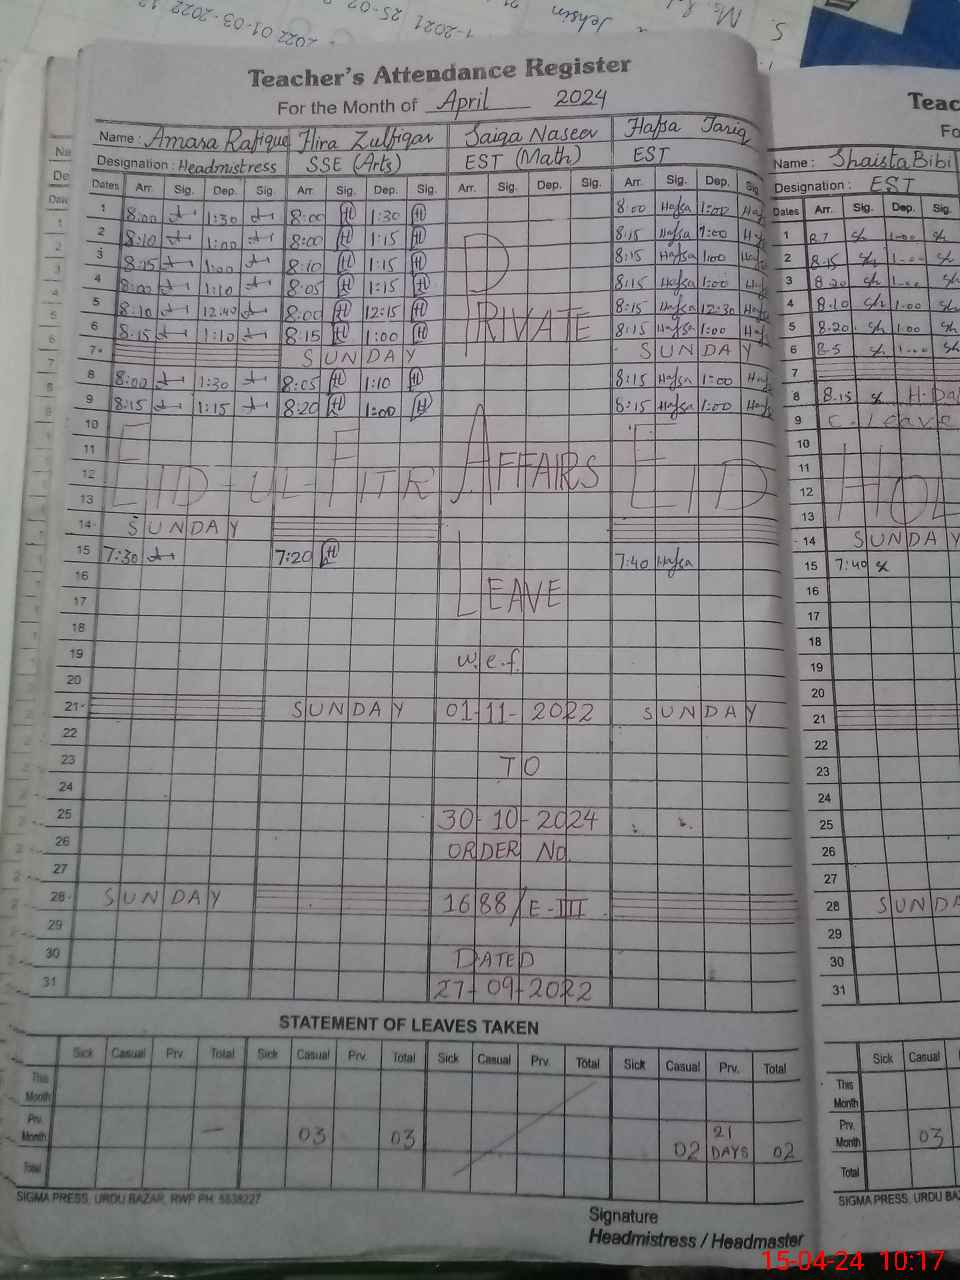 Teacher's Attendance Register
For the Month of April 2024
Name : Amara Rafique Hira Zulfiqar Saiqa Naseer Hafsa Tariq
Designation : Headmistress SSE (Arts) EST (Math) EST
Dates Arr. Sig. Dep. Sig. Arr. Sig. Dep. Sig. Arr. Sig. Dep. Sig. Arr. Sig. Dep. Sig
1 8:00 1:30 8:00 H 1:30 H 8:00 Hafsa 1:00 Haf
2 8:10 1:00 8:00 H 1:15 H 8:15 Hafsa 1:00
3 8:15 1:00 8:10 H 1:15 H 8:15 Hafsa 1:00
4 8:00 1:10 8:05 H 1:15 H 8:15 Hafsa 1:00 Haf
5 8:10 12:40 8:00 H 12:15 H 8:15 Hafsa 12:30 Haf
6 8:15 1:10 8:15 H 1:00 H PRIVATE 8:15 Hafsa 1:00 Haf
7 SUNDAY SUNDAY
8 8:00 1:30 8:05 H 1:10 H 8:15 Hafsa 1:00 Haf
9 8:15 1:15 8:20 H 1:00 H 8:15 Hafsa 1:00 Haf
10
11
12 EID-UL-FITR AFFAIRS EID
13
14 SUNDAY
15 7:30 7:20 H 7:40 Hafsa
16
17 LEAVE
18
19 w.e.f.
20
21 SUNDAY 01-11-2022 SUNDAY
22
23 TO
24
25 30-10-2024
26 ORDER No.
27
28 SUNDAY 1688/E-III
29
30 DATED
31 27-09-2022
STATEMENT OF LEAVES TAKEN
Sick Casual Prv. Total Sick Casual Prv. Total Sick Casual Prv. Total Sick Casual Prv. Total
This Month
Prv. Month — 03 03 02 21 DAYS 02
Total
SIGMA PRESS, URDU BAZAR, RWP PH. 5538227
Signature
Headmistress / Headmaster
Teac
Fo
Name : Shaista Bibi
Designation : EST
Dates Arr. Sig. Dep. Sig.
1 Sh 1:00 Sh
2 8:15 Sh 1:00 Sh
3 8:20 Sh 1:00 Sh
4 8:10 Sh 1:00 Sh
5 8:20 Sh 1:00 Sh
6 8:5 Sh 1:00 Sh
7
8 8.15
9 C. Leave
10
11
12 HOL
13
14 SUNDAY
15 7:40
16
17
18
19
20
21
22
23
24
25
26
27
28 SUNDA
29
30
31
Sick Casual
This Month
Prv. Month 03
Total
SIGMA PRESS, URDU BA
15-04-24 10:17